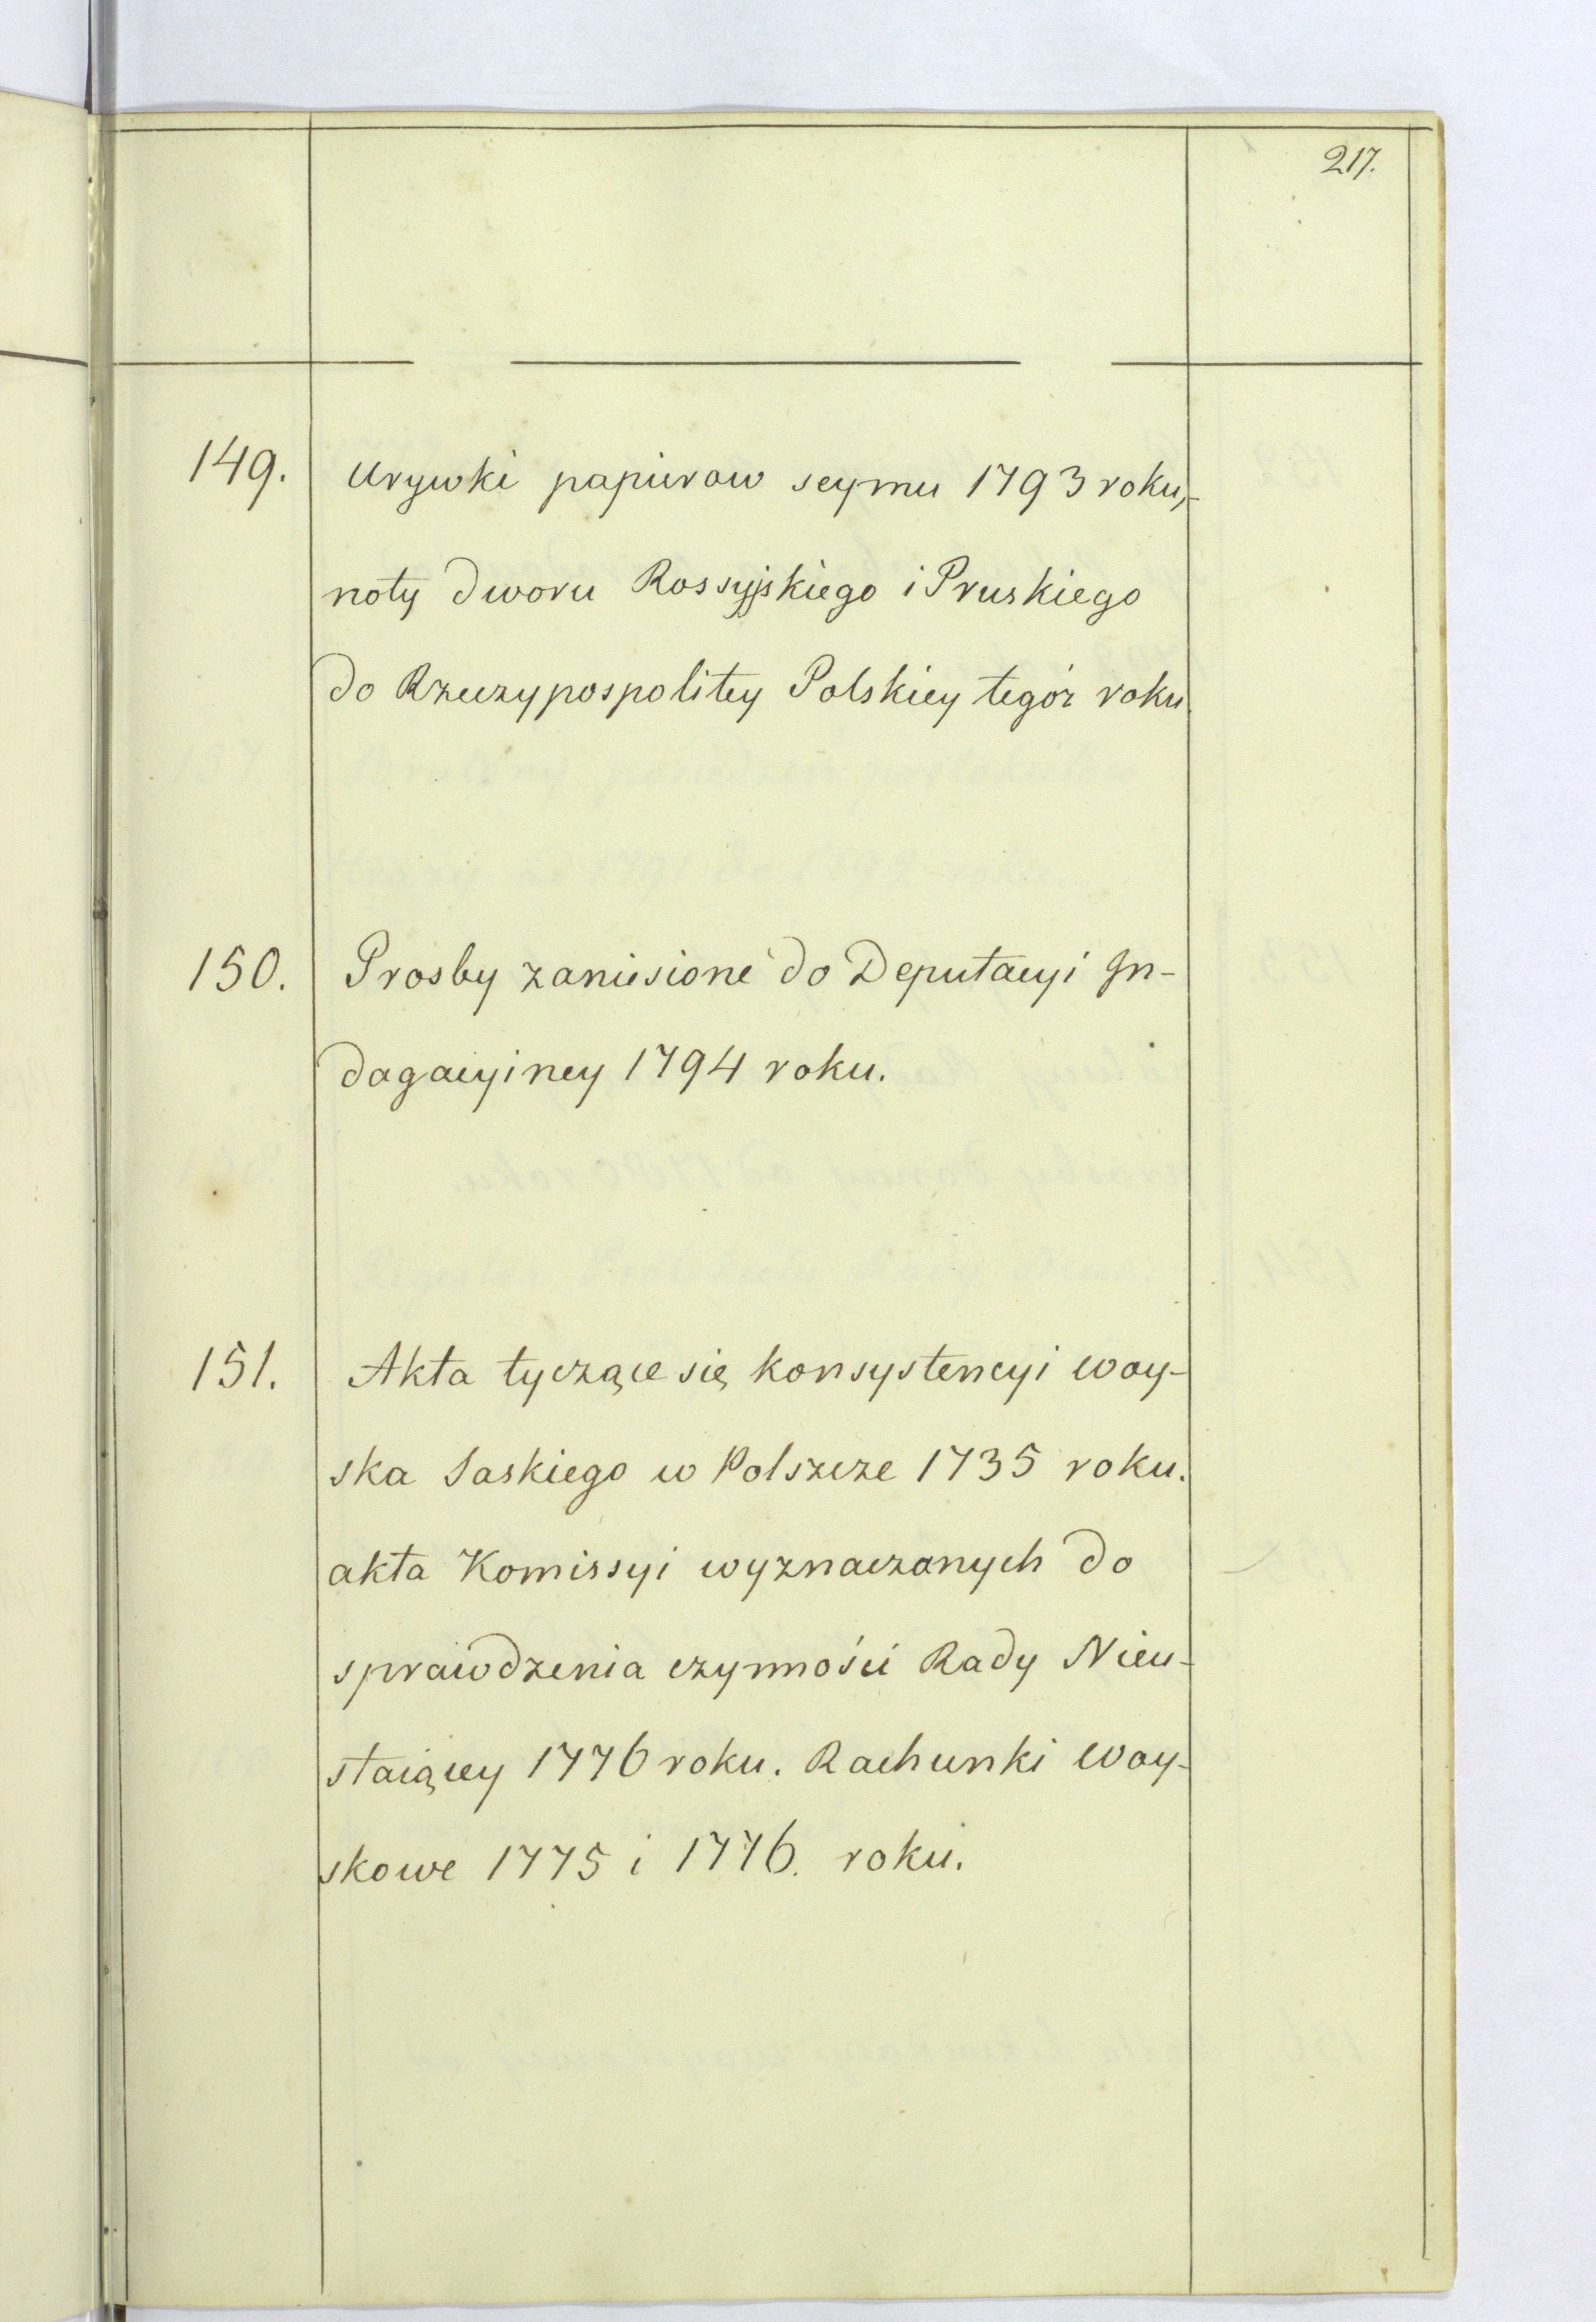 217.
149. Urywki papierow seymu 1793 roku,-
noty dworu Rossyjskiego i Pruskiego
do Rzeczypospolitey Polskiey tegóż roku.
150. Prosby zaniesione do Deputacyi In-
dagacyiney 1794 roku.
151. Akta tyczące się konsystencyi woy-
ska Saskiego w Polszcze 1735 roku.
akta Komissyi wyznaczonych do
sprawdzenia czynności Rady Nieu-
staiącey 1776 roku. Rachunki Woy-
skowe 1775 i 1776. roku.